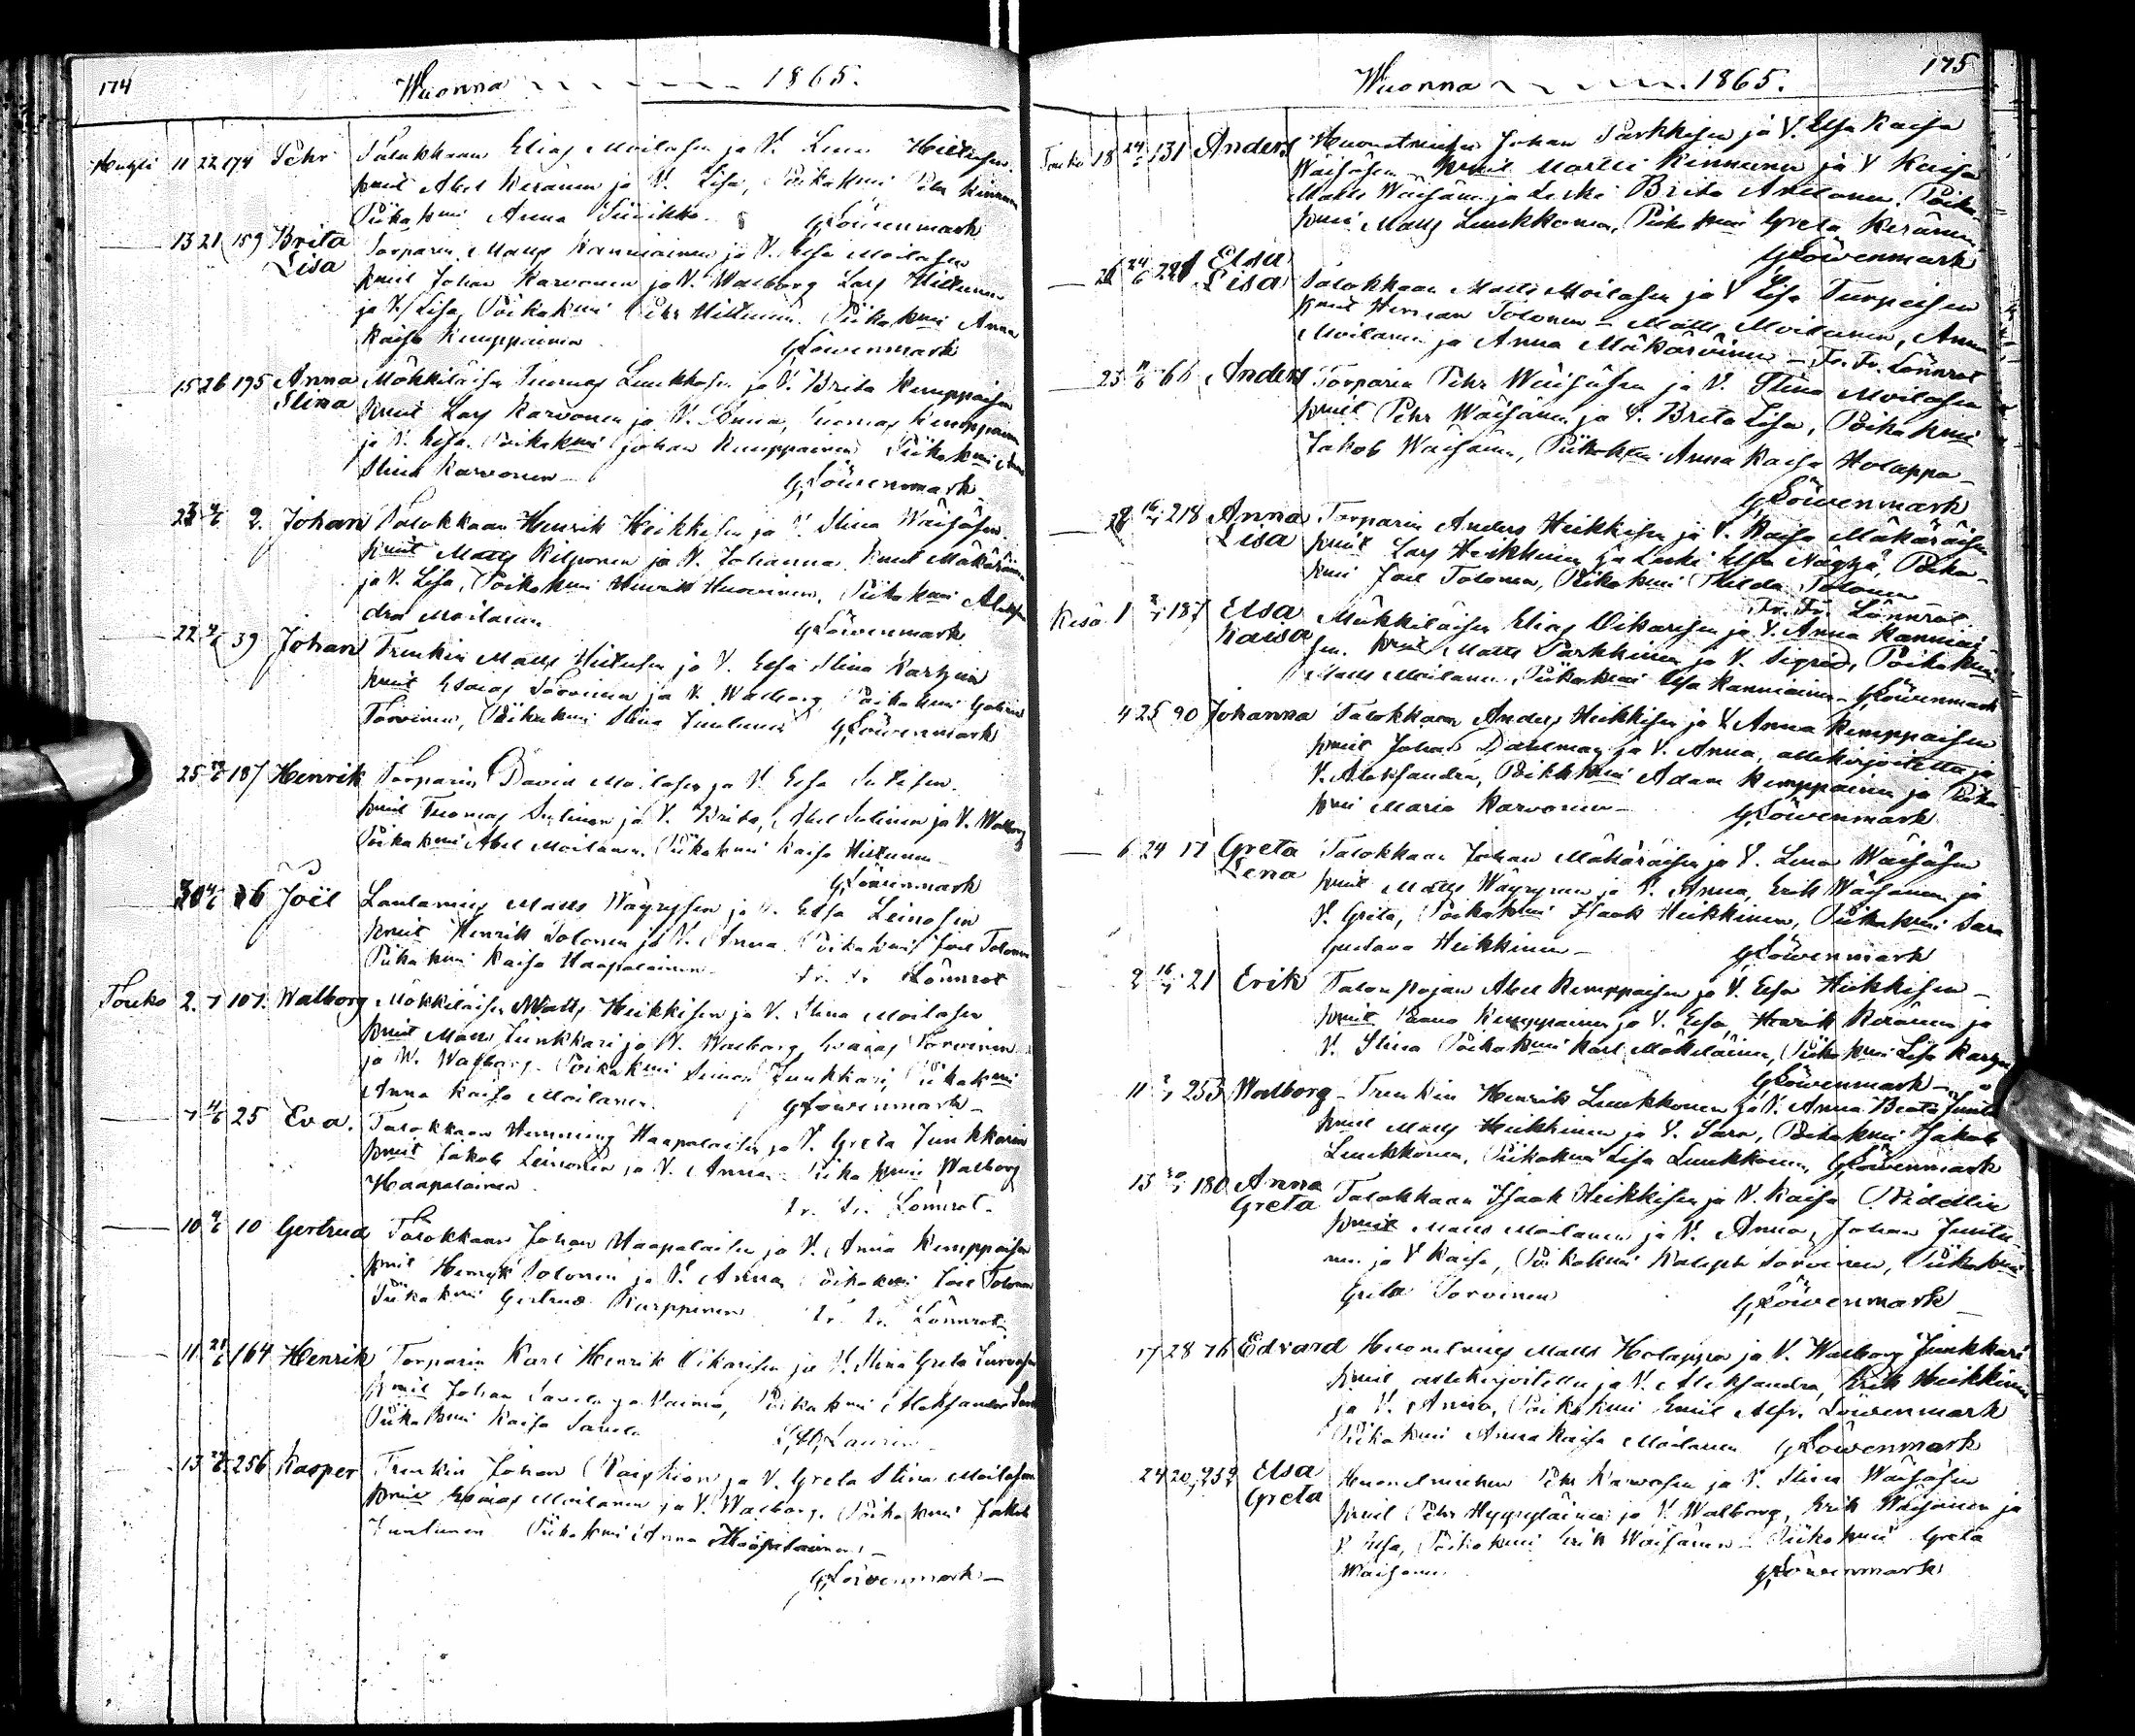 174
Wuonna 1865.
Huhti 11 22 174 Pehr Talokkaan Elias Moilasen ja V. Lena Hiltusen
kmit Abel Keränen ja V. Lisa, Poikakmi Pehr Kinnunen
Piikakmi Anna Piirikko. G Löwenmark
13 21 159 Brita Lisa Torparin Matts Kanniainen ja V. Elsa Moilasen
kmit Johan Karvonen ja V. Walborg Lars Hiltunen
ja V. Lisa, Poikakmi Pehr Hiltunen. Piikakmi Anna
Kaisa Kemppainen G Löwenmark
15 26 195 Anna Stina Mökkiläisen Tuomas Luukkosen ja V. Brita Kemppaisen
kmit Lars Karvonen ja V. Anna, Tuomas Kemppainen
ja V. Elsa. Poikakmi Johan Kemppainen Piikakmi Anna
Stina Karvonen G Löwenmark
23 4/6 2. Johan Talokkaan Henrik Heikkisen ja V. Stina Wäisäsen
kmit Matts Kilponen ja V. Johanna, Knut Mäkäräinen
ja V. Lisa, Poikakmi Henrik Huovinen, Piikakmi Aleksan
dra Moilanen G Löwenmark
22 4/6 39 Johan Trenkin Matts Hiltusen ja V. Elsa Stina Karhun
kmit Esaias Torvinen ja V. Walborg Poikakmi
Torvinen, Piikakmi Stina Juntunen G Löwenmark
25 187 Henrik Torparin David Moilasen ja V. Elsa
kmit Tuomas ja V. Brita, Abel ja V. Walborg
Poikakmi Abel Moilanen. Piikakmi Kaisa Hiltunen
G Löwenmark
30 4/6 26 Joël Lautamies Matts Wäyrysen ja V. Elsa Leinosen
kmit Henrik Tolonen ja V. Anna Poikakmi Joel Tolonen
Piikakmi Kaisa Haapalainen Fr. Fr. Lönnrot
Touko 2. 7 107. Walborg Mökkiläisen Matts Heikkisen ja V. Stina Moilasen
kmit Matts Junkkari ja V. Walborg, Esaias Torvinen
ja V. Walborg. Poikakmi Simon Junkkari, Piikakmi
Anna Kaisa Moilanen. G Löwenmark
7 4/6 25 Eva. Talokkaan Henning Haapalaisen ja V. Greta Junkkarin
kmit Jakob Leinonen ja V. Anna Piikakmi Walborg
Haapalainen Fr. Fr. Lönnrot
10 4/6 10 Gertrud Talokkaan Johan Haapalaisen ja V. Anna Kemppaisen
kmit Henrik Tolonen ja V. Anna, Poikakmi Joel Tolonen
Piikakmi Gertrud Karppinen Fr. Fr. Lönnrot
11 21/6 164 Henrik Torparin Karl Henrik Oikarisen ja V. Stina Greta
kmit Johan ja Vaimo, Poikakmi Aleksander
Piikakmi Kaisa
13 256 Kasper Trenkin Johan ja V. Greta Stina Moilasen
kmit Esaias Moilanen ja V. Walborg. Poikakmi Jakob
Juntunen Piikakmi Anna Haapalainen
G Löwenmark
175
Wuonna 1865.
Touko 18 24/6 131 Anders Huonetmiehen Johan Parkkisen ja V. Elsa Kaisa
Wäisäsen kmit Martti Kinnunen ja V Kaisa
Matts Wäisänen ja Leski Brita Anttonen, Poika
kmi Matts Luukkonen, Piikakmi Greta Keränen
G Löwenmark
24/6 221 Elsa Lisa Talokkaan Matts Moilasen ja V Lisa Turpeisen
kmit Herman Tolonen Matts Moilanen, Anna
Moilanen ja Anna Mäkäräinen Fr. Fr. Lönnrot
25 66 Anders Torparin Pehr Wäisäsen ja V. Stina Moilasen
kmit Pehr Wäisänen ja V. Brita Lisa, Poikakmi
Jakob Wäisänen, Piikakmi Anna Kaisa Holappa
G Löwenmark
28 16/7 218 Anna Lisa Torparin Anders Heikkisen ja V. Kaisa Mäkäräisen
kmit Lars Heikkinen ja Leski Elsa Poika
kmi Joel Tolonen, Piikakmi Hilda Tolonen
Fr. Fr. Lönnrot
Kesä 1 2/7 187 Elsa Kaisa Mökkiläisen Elias Oikarisen ja V. Anna Kanniai
sen. kmit Matts Parkkinen ja V. Sigrid, Poikakmi
Matts Moilanen Piikakmi Elsa Kanniainen G Löwenmark
4 25 90 Johanna Talokkaan Anders Heikkisen ja V. Anna Kemppaisen
kmit Johan Dahlman ja V. Anna, allekirjoitettu ja
V. Aleksandra, Poikakmi Adam Kemppainen ja Piika
kmi Maria Karvonen G Löwenmark
6 24 17 Greta Lena Talokkaan Johan Mäkäräisen ja V. Lena Wäisäsen
kmit Matts Wäyrynen ja V. Anna, Erik Wäisänen ja
V. Greta, Poikakmi Isaak Heikkinen, Piikakmi Sara
Gustava Heikkinen G Löwenmark
2 16/7 21 Erik Talonpojan Abel Kemppaisen ja V. Elsa Heikkisen
kmit Paavo Kemppainen ja V. Elsa, Henrik Keränen ja
V. Stina Poikakmi Karl Mäkeläinen, Piikakmi Lisa
G Löwenmark
11 2/7 253 Walborg Trenkin Henrik Luukkonen ja V. Anna Beata
kmit Matts Heikkinen ja V. Sara, Poikakmi Jakob
Luukkonen, Piikakmi Lisa Luukkonen G Löwenmark
13 180 Anna Greta Talokkaan Isaak Heikkisen ja V. Kaisa
kmit Matts Moilanen ja V. Anna, Johan Juntu
nen ja V Kaisa, Poikakmi Torvinen, Piikakmi
Greta Torvinen G Löwenmark
17 28 76 Edvard Huonetmies Matts Holappa ja V. Walborg Junkkari
kmit allekirjoitettu ja V. Aleksandra, Erik Heikkinen
ja V. Anna, Poikakmi Emil Alfr. Löwenmark
Piikakmi Anna Kaisa Moilanen G Löwenmark
24 20 252 Elsa Greta Huonetmiehen Pehr Karvosen ja V. Stina Wäisäsen
kmit Pehr ja V. Walborg, Erik Wäisänen ja
V. Elsa, Poikakmi Erik Wäisänen Piikakmi Greta
Wäisänen G Löwenmark